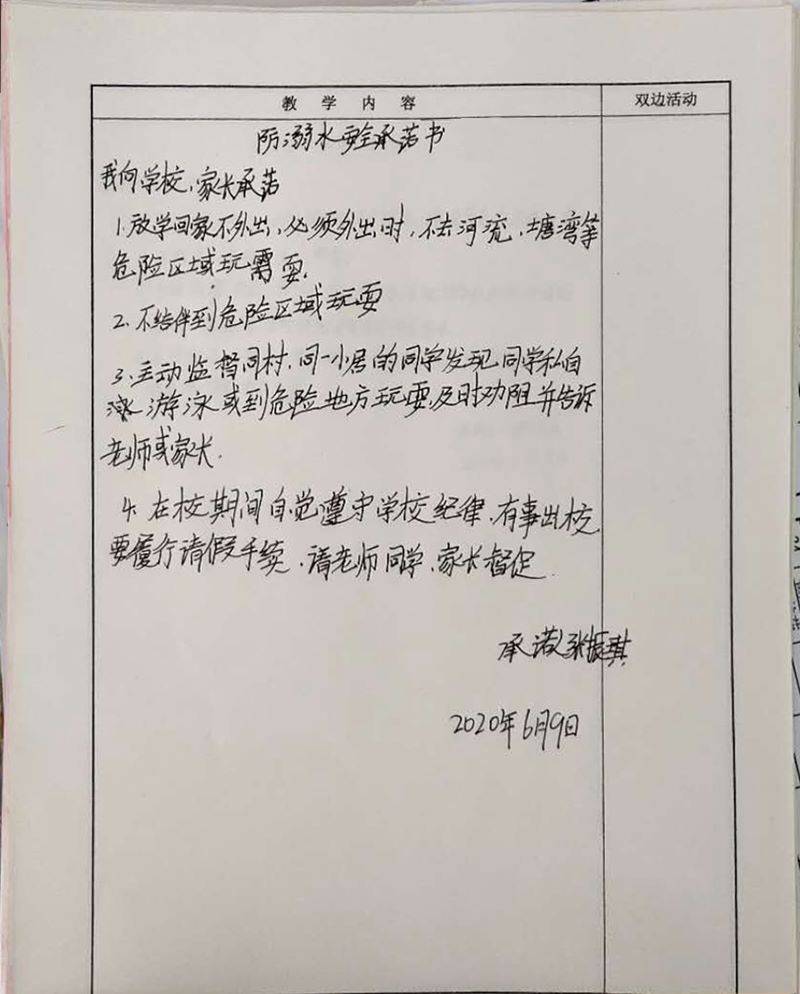 教 学 内 容
双边活动
防溺水安全承诺书
我向学校,家长承诺
1.放学回家不外出,必须外出时,不去河流、塘湾等
危险区域玩需耍.
2.不结伴到危险区域玩耍
3.主动监督同村.同一小居的同学发现同学私自
泳游泳或到危险地方玩耍,及时劝阻并告诉
老师或家长.
4.在校期间自觉遵守学校纪律,有事出校
要履行请假手续、请老师同学、家长督促.
承诺人张振琪
2020年6月9日